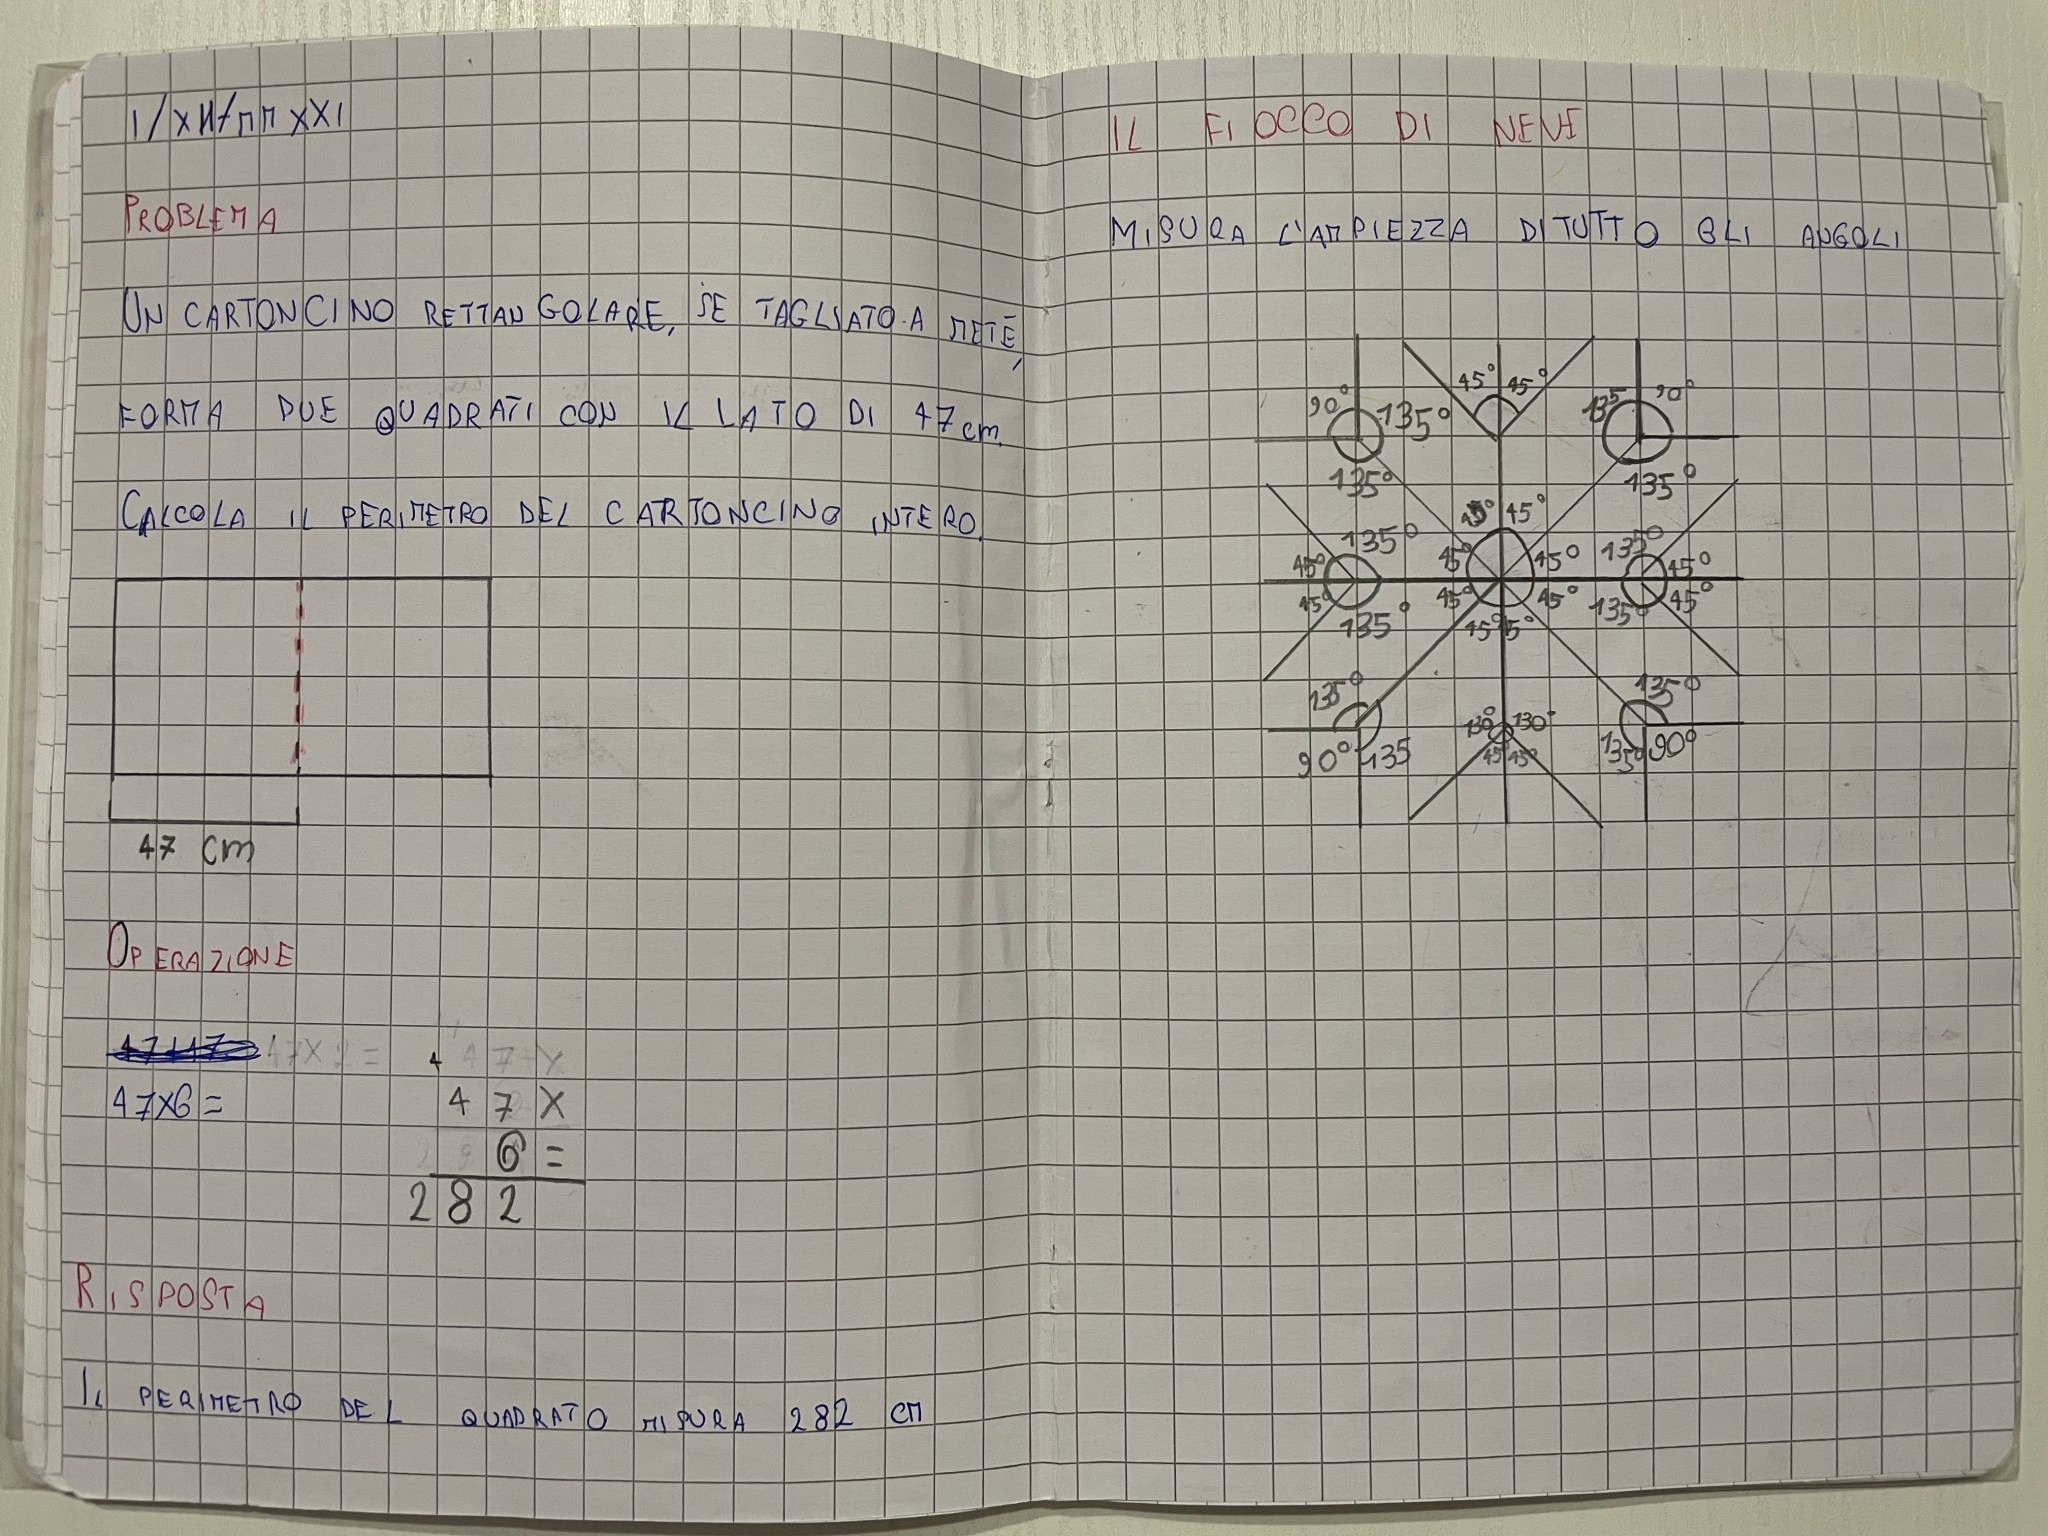 PROBLEMA
UN CARTONCINO RETTANGOLARE, SE TAGLIATO A METÈ,
FORMA DUE QUADRATI CON IL LATO DI 47 cm.
CALCOLA IL PERIMETRO DEL CARTONCINO INTERO.
47 cm
OPERAZIONE
47X2= 47X
47X6= 47X
6=
282
RISPOSTA
IL PERIMETRO DEL QUADRATO MISURA 282 CM
IL FIOCCO DI NEVE
MISURA L'AMPIEZZA DI TUTTO GLI ANGOLI
45° 45°
90° 135° 135 90°
135° 135°
45° 45°
135° 135°
45° 45° 45° 45°
45° 45° 45° 45°
135° 45° 5° 135°
135° 135°
130° 130°
90° 135 45° 45° 135° 90°